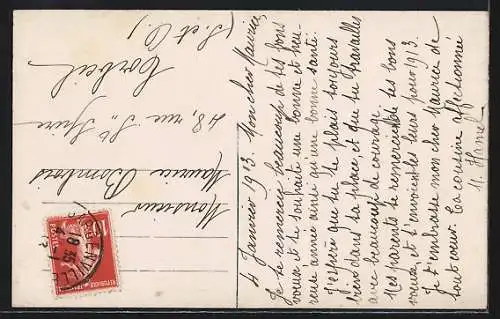 4 Janvier 1913. Mon cher Maurice,
Je te remercie beaucoup de tes bons
vœux et te souhaite une bonne et heu-
reuse année ainsi qu'une bonne santé.
J'espère que tu te plais toujours
bien dans ta place, et que tu travailles
avec beaucoup de courage.
Mes parents te remercient de tes bons
vœux et t'envoient les leurs pour 1913.
Je t'embrasse mon cher Maurice de
tout cœur. Ta cousine affectionnée
M. Hamel
Monsieur
Maurice
48, rue St Spire
Corbeil
(S. et O.)